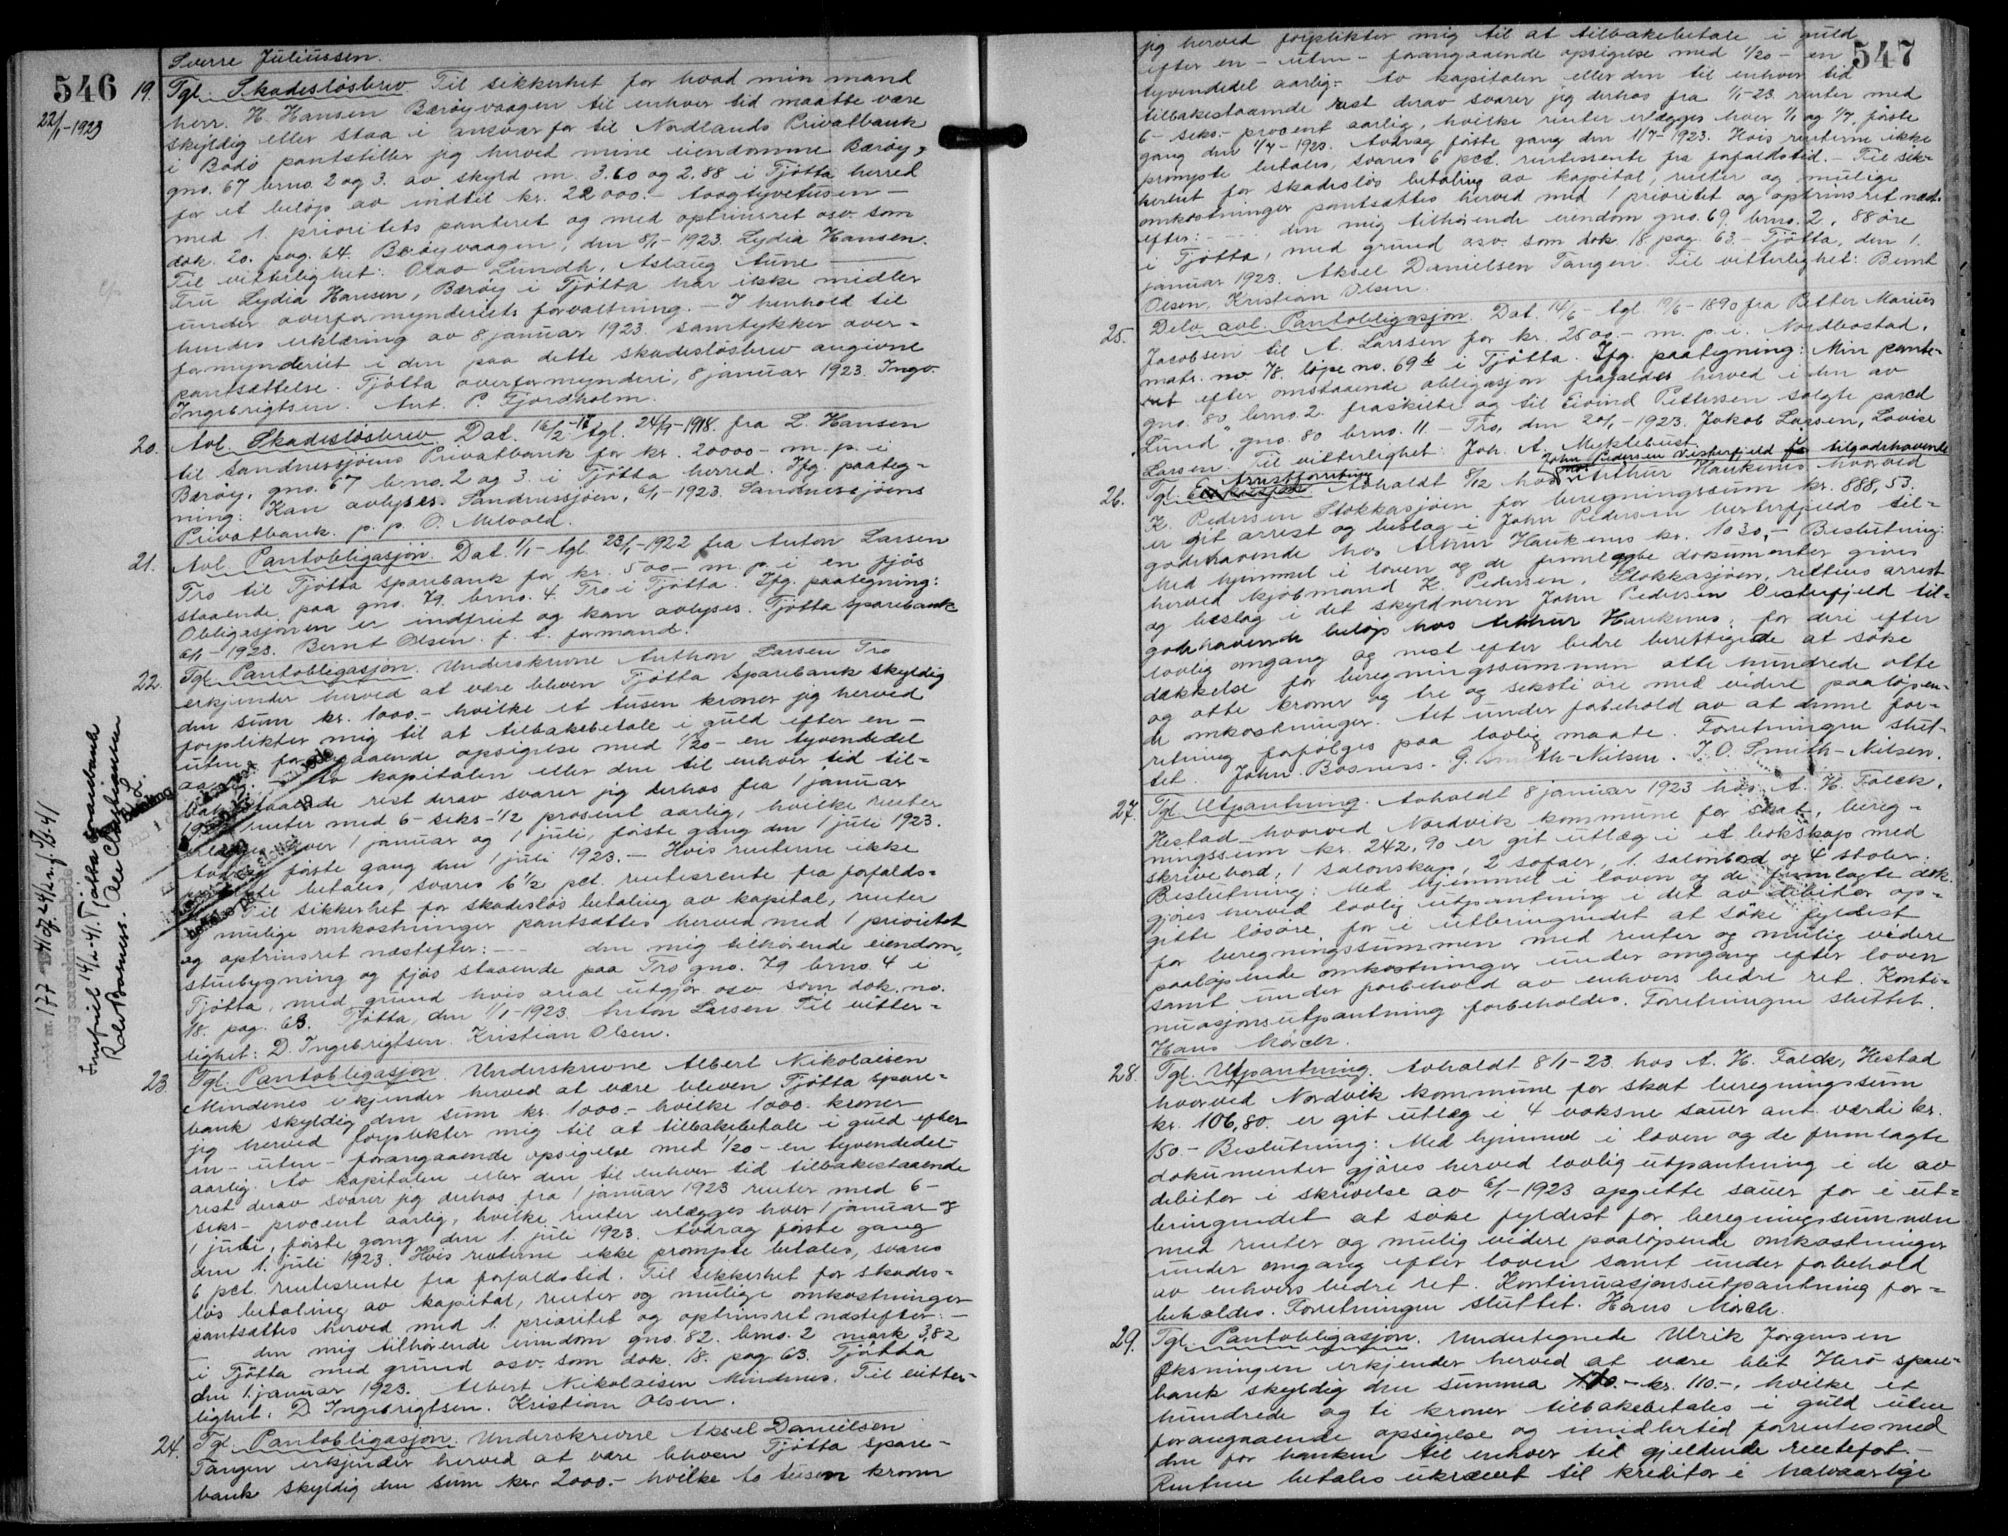 546
22/1-1923
Sverre Juliussen.
19. Tgl. Skadesløsbrev Til sikkerhet for hvad min mand
herr. H. Hansen Bærøyvaagen til enhver tid maatte være
skyldig eller staa i ansvar for til Nordlands Privatbank
i Bodø pantstiller jeg herved mine eiendomme Bærøy,
gno. 67 brno. 2 og 3. av skyld m. 3.60 og 2.88 i Tjøtta herred
for et beløp av indtil kr. 22000.- toogtyvetusen -
med 1. prioritets panteret og med optrinsret osv. som
dok. 20. pag. 64. Bærøyvaagen, den 8/1-1923. Lydia Hansen.
Til vitterlighet: Olav Lundh, Aslaug Aune
Fru Lydia Hansen, Bærøy i Tjøtta har ikke midler
under overformynderiets forvaltning. - I henhold til
hendes erklæring av 8 januar 1923 samtykker over-
formynderiet i den paa dette skadesløsbrev angivne
pantsættelse. Tjøtta overformynderi, 8 januar 1923. Ingv.
Ingebrigtsen. Ant. P. Fjordholm.
20. Avl. Skadesløsbrev. Dat. 16/2-17 tgl. 24/9-1918. fra L. Hansen
til Sandnessjøens Privatbank for kr. 20000- m. p. i
Bærøy, gno. 67 brno. 2 og 3. i Tjøtta herred. Ifg. paateg-
ning: Kan avlyses. Sandnessjøen, 6/1-1923. Sandnessjøens
Privatbank. p. p. O. Melvold.
21. Avl. Pantobligasjon. Dat. 1/1- tgl. 23/1-1922 fra Anton Larsen
Tro til Tjøtta sparebank for kr. 500- m. p. i en fjøs
staaende paa gno. 79 brno. 4 Tro i Tjøtta. Ifg. paategning:
Obligasjonen er indfriet og kan avlyses. Tjøtta sparebank
6/1-1923. Bernt Olsen. f. t. formand.
22. Tgl. Pantobligasjon. Underskrevne Anthon Larsen Tro
erkjender herved at være bleven Tjøtta sparebank skyldig
den sum kr. 1000.- hvilke et tusen kroner jeg herved
forplikter mig til at tilbakebetale i guld efter en -
uten - forangaaende opsigelse med 1/20- en tyvendedel
Av kapitalen eller den til enhver tid til-
bakestaaende rest derav svarer jeg derhos fra 1 januar
renter med 6- seks- 1/2 prosent aarlig, hvilke renter
1 januar og 1 juli, første gang den 1 juli 1923.
første gang den 1 juli 1923. - Hvis renterne ikke
betales, svares 6 1/2 pct. rentesrente fra forfalds-
Til sikkerhet for skadesløs betaling av kapital, renter
og mulige omkostninger pantsættes herved med 1 prioritet
og optrinsret næstefter: - den mig tilhørende eiendom,
stuebygning og fjøs staaende paa Tro gno. 79 brno. 4 i
Tjøtta, med grund hvis areal utgjør osv. som dok. no.
18. pag. 63. Tjøtta, den 1/1-1923. Anton Larsen Til vitter-
lighet: D. Ingebrigtsen. Kristian Olsen.
23. Tgl. Pantobligasjon. Underskrevne Albert Nikolaisen
Mindenes erkjender herved at være bleven Tjøtta spare-
bank skyldig den sum kr. 1000.- hvilke 1000. kroner
jeg herved forplikter mig til at tilbakebetale i guld efter
en- uten- forangaaende opsigelse med 1/20- en tyvendedel-
aarlig. Av kapitalen eller den til enhver tid tilbakestaaende
rest derav svarer jeg derhos fra 1 januar 1923 renter med 6-
seks- procent aarlig, hvilke renter erlægges hver 1 januar og
1 juli, første gang den 1. juli 1923. Avdrag første gang
den 1. juli 1923. Hvis renterne ikke prompte betales, svares
6 pct. rentesrente fra forfaldstid. Til sikkerhet for skades-
løs betaling av kapital, renter og mulige omkostninger
pantsættes herved med 1. prioritet og optrinsret næstefter: -
- den mig tilhørende eiendom gno. 82. brno. 2 mark 3,82
i Tjøtta med grund osv. som dok. 18. pag 63. Tjøtta
den 1. januar 1923. Albert Nikolaisen Mindenes. Til vitter-
lighet: D. Ingebrigtsen. Kristian Olsen.
24. Tgl. Pantobligasjon. Underskrevne Aksel Danielsen
Tangen erkjender herved at være bleven Tjøtta spare-
bank skyldig den sum kr. 2000.- hvilke to tusen kroner
547
jeg herved forplikter mig til at tilbakebetale i guld
efter en - uten - forangaaende opsigelse med 1/20 - en
tyvendedel aarlig.- Av kapitalen eller den til enhver tid
tilbakestaaende rest derav svarer jeg derhos fra 1/1-23 renter med
6- seks- procent aarlig, hvilke renter erlægges hver 1/1 og 1/7, første
gang den 1/7-1923. Avdrag første gang den 1/7-1923. Hvis renterne ikke
prompte betales, svares 6 pct. rentesrente fra forfaldstid. - Til sik-
kerhet for skadesløs betaling av kapital, renter og mulige
omkostninger pantsættes herved med 1 prioritet og optrinsret næst-
efter: - den mig tilhørende eiendom gno. 69, brno. 2, 88 øre
i Tjøtta, med grund osv. som dok 18 pag. 63. - Tjøtta, den 1.
januar 1923. Aksel Danielsen Tangen. Til vitterlighet: Bernt
Olsen. Kristian Olsen.
25. Delv. avl. Pantobligasjon. Dat. 14/6- tgl. 19/6-1890 fra Petter Marius
Jacobsen til A. Larssen for kr. 2500- m. p. i. Nordbostad,
matr. no 78. løpe no. 69b i Tjøtta. Ifg. paategning: Min pante-
ret efter omstaaende obligasjon frafaldes herved i den av
gno. 80 brno. 2. fraskilte og til Eivind Pettersen solgte parcel
"Lund", gno. 80 brno. 11 - Tro, den 20/1-1923. Jakob Larsen, Lovise
Larsen. Til vitterlighet: Joh. A. Myklebust.
26. Tgl. Arrestforretning avholdt 8/12 hos John Pedersen Vesterfjeld tilgodehavende hos Arthur Haukenes hvorved
K. Pedersen Stokkasjøen for beregningssum kr. 888,53.
er git arrest og beslag i John Pedersen Vesterfjelds til-
godehavende hos Arthur Haukenes kr. 1030,- Beslutning:
Med hjemmel i loven og de fremlagte dokumenter gives
herved kjøbmand K. Pedersen, Stokkasjøen, rettens arrest
og beslag i det skyldneren John Pedersen Vesterfjeld til-
godehavende beløp hos Arthur Haukenes, for deri efter
lovlig omgang og næst efter bedre berettigede at søke
dækkelse for beregningssummen otte hundrede otte
og otte kroner og tre og seksti øre med videre paaløpen-
de omkostninger. Alt under forbehold av at denne for-
retning forfølges paa lovlig maate. Forretningen slut-
tet. John Bosness. G. Smith-Nilsen. J. O. Smith-Nilsen.
27. Tgl. Utpantning. Avholdt 8 januar 1923 hos A. H. Falck,
Hestad hvorved Nordvik kommune for skat, bereg-
ningssum kr. 242,90 er git utlæg i et bokskap med
skrivebord, 1 salonskap, 2 sofaer, 1. salonbord og 4 stoler:
Beslutning: Med hjemmel i loven og de fremlagte dok.
gjøres herved lovlig utpantning i det av debitor op-
gitte løsøre for i utbringendet at søke fyldest
for beregningssummen med renter og mulig videre
paaløpende omkostninger under omgang efter loven
samt under forbehold av enhvers bedre ret. Konti-
nuasjonsutpantning forbeholdes. Forretningen sluttet.
Hans Mørch.
28. Tgl. Utpantning. Avholdt 8/1-23 hos A. H. Falck, Hestad
hvorved Nordvik kommune for skat beregningssum
kr. 106,80. er git utlæg i 4 voksne sauer ant. værdi kr.
150- Beslutning: Med hjemmel i loven og de fremlagte
dokumenter gjøres herved lovlig utpantning i de av
debitor i skrivelse av 6/1-1923 opgitte sauer for i ut-
bringendet at søke fyldest for beregningssummen
med renter og mulig videre paaløpende omkostninger
under omgang efter loven samt under forbehold
av enhvers bedre ret. Kontinuasjonsutpantning for-
beholdes. Forretningen sluttet. Hans Mørch.
29. Tgl. Pantobligasjon. Undertegnede Ulrik Jørgensen
Øksningen erkjender herved at være blit Herø spare-
bank skyldig den summa kr. 110.-, hvilke et
hundrede og ti kroner tilbakebetales i guld uten
forangaaende opsigelse og imidlertid forrentes med
den for banken til enhver tid gjeldende rentefot. -
Renterne betales ukrævet til kreditor i halvaarlige